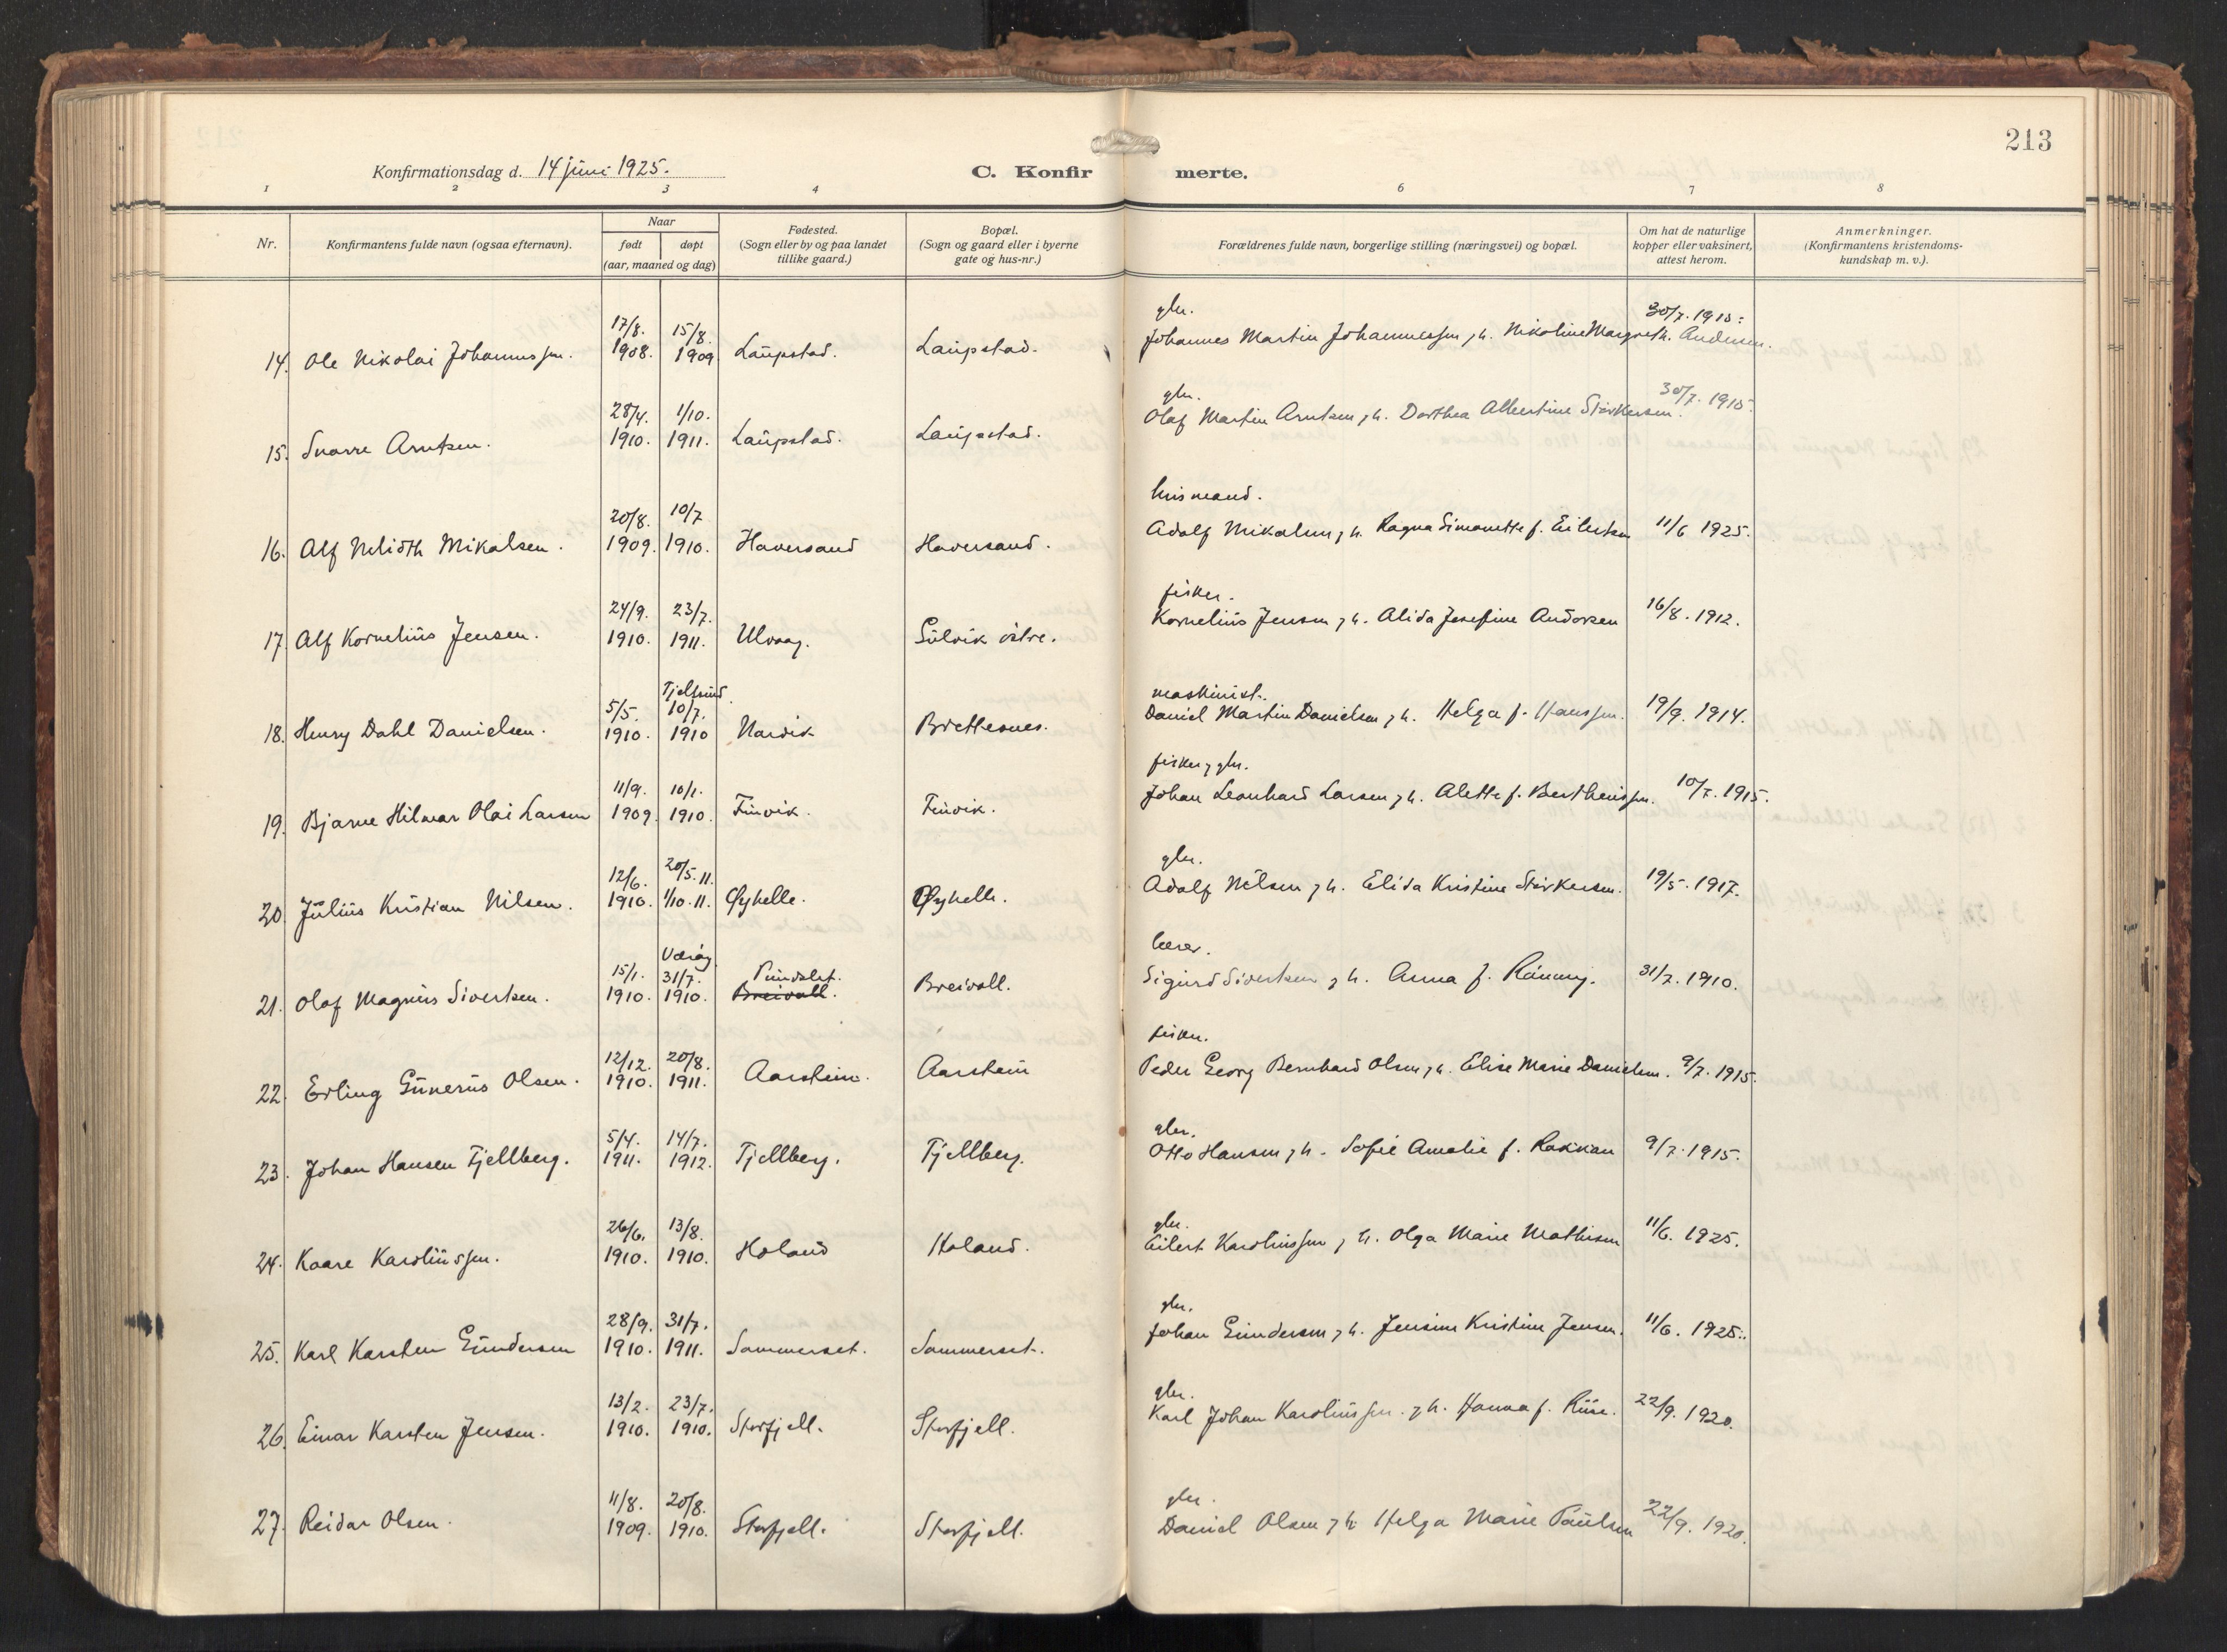 213
Konfirmationsdag d. 14 juni 1925.
C. Konfir merte.
1 2 3 4 6 7 8
Nr.
Konfirmantens fulde navn (ogsaa efternavn).
Naar
født døpt
(aar, maaned og dag)
Fødested.
(Sogn eller by og paa landet
tillike gaard.)
Bopæl.
(Sogn og gaard eller i byerne
gate og hus-nr.)
Forældrenes fulde navn, borgerlige stilling (næringsvei) og bopæl.
Om hat de naturlige
kopper eller vaksinert,
attest herom.
Anmerkninger.
(Konfirmantens kristendoms-
kundskap m. v.).
17/8. 15/8. gbr. 30/7. 1910.
14. Ole Nikolai Johannessen. 1908. 1909 Laupstad. Laupstad. Johannes Martin Johannessen , h. Nikoline Margreth. Andersen.
28/4. 1/10. gbr. 30/7. 1915.
15. Snorre Arntsen. 1910. 1911. Laupstad. Laupstad. Olaf Martin Arntsen , h. Dorthea Albertine Størkersen.
20/8. 10/7 husmand.
16. Alf Mikalsen. 1909. 1910. Haversand Haversand. Adolf Mikalsen , h. Ragna Simonette f. Eilertsen 11/6 1925.
24/9. 23/7. fisker.
17. Alf Kornelius Jensen. 1910. 1911. Ulvaag. Sülvik østre. Kornelius Jensen , h. Alida Josefine Andorsen 16/8. 1912.
Tjeltsund.
5/5. 10/7. maskinist.
18. Henry Dahl Danielsen. 1910. 1910 Narvik Brettesnes. Daniel Martin Danielsen , h. Helga f. Hanssen. 19/9. 1914.
11/9. 10/1. fisker , gbr.
19. Bjarne Hilmar Olai Larsen 1909. 1910. Finvik. Finvik. Johan Leonhard Larsen , h. Alette f. Bertheussen. 10/7. 1915.
12/6. 20/5. 11. gbr.
20. Julius Kristian Nilsen. 1910. 1/10. 11. Øyhelle. Øyhelle. Adolf Nilsen , h. Elida Kristine Størkersen. 19/5. 1917.
Værøy.
15/1. 31/7. Pundslet. lærer.
21. Olaf Magnus Sivertsen. 1910. 1910. Breivoll. Breivoll. Sigurd Sivertsen , h. Anna f. 31/7. 1910.
12/12. 20/8. fisker.
22. Erling Gunerius Olsen. 1910. 1911. Aarstein. Aarstein Peder Georg Bernhard Olsen , h. Elise Marie Danielsen. 9/7. 1915.
5/4. 14/7. gbr.
23. Johan Hansen Fjellberg. 1911. 1912. Fjellberg. Fjellberg. Otto Hansen , h. Sofie Amalie f. Rakkan 9/7. 1915.
26/6. 13/8. gbr.
24. Kaare Karoliussen. 1910. 1910. Holand Holand. Eilert Karoliussen , h. Olga Marie Mathisen 11/6. 1925.
28/9. 31/7. gbr.
25. Karl Karsten Gundersen 1910. 1911. Sommerset. Sommerset. Johan Gundersen , h. Jensine Kristine Jensen. 11/6. 1925.
13/2. 23/7. gbr.
26. Einar Karsten Jensen. 1910. 1910. Storfjell. Storfjell. Karl Johan Karoliussen. , h. Hanna f. Riise. 22/9. 1920.
11/8. 20/8. gbr.
27. Reidar Olsen. 1909. 1910. Storfjell. Storfjell. Daniel Olsen , h. Helga Marie Paulsen 22/9. 1920.